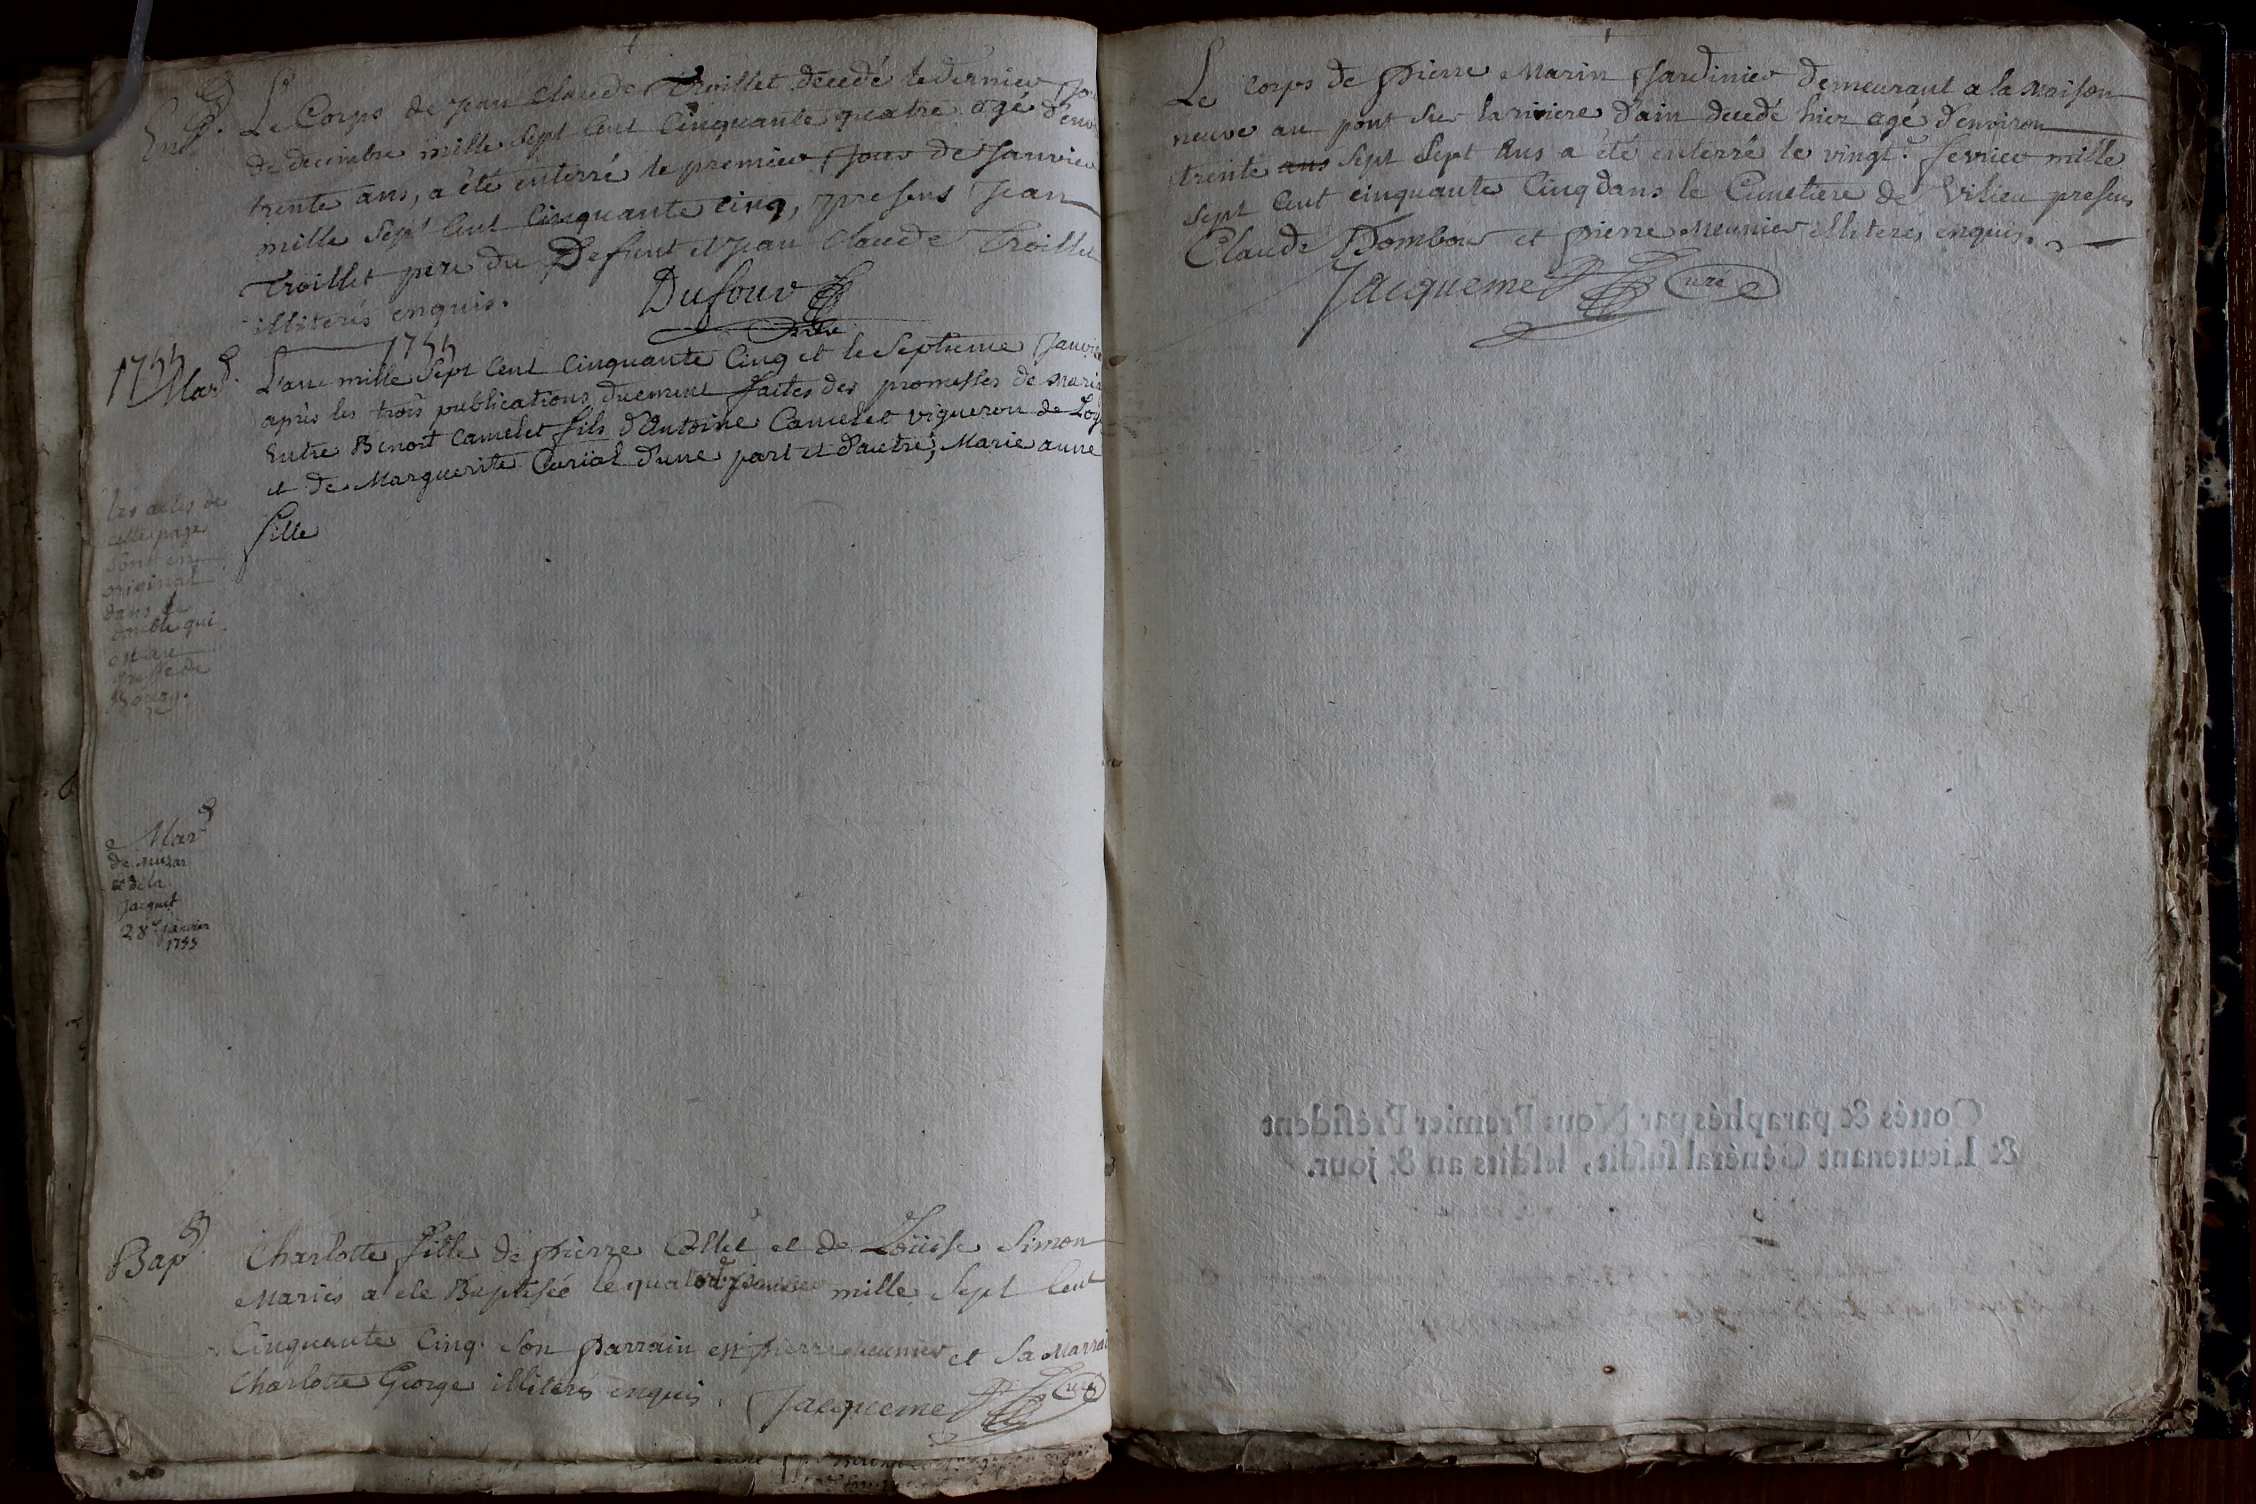 Ent.
Le Corps de Jean Claude Troillet decedé le dernier Jou
de decembre mille sept cent cinquante quatre agé d'env
trente ans, a été enterré le premier Jour de Janvier
mille sept cent cinquante cinq, presens Jean
Troillet pere du Defunt et Jean Claude Troillet
illiterés enquis.
Dufour
Ptre
1755
1755
Mar.
L'an mille sept cent cinquante cinq et le septieme Janvier
après les trois publications duement faites des promesses de Maria
Entre Benoit Camelet fils d'Antoine Camelet vigneron de Loy
et de Marguerite Curial d'une part et d'autre, Marie anne
fille
les actes de
cette page
sont en
original
dans le
double qui
est au
greffe de
Bourg.
Mar
de
et de la
Jacquet
28e janvier
1755
Bap.
Charlotte fille de pierre Collet et de Loüise Simon
Mariés a été Baptisée le quatorze Janvier mille sept cent
Cinquante Cinq. Son parrain est pierre meunier et sa Marrai
Charlotte George illiterés enquis. Jacquemet Curé
Le corps de pierre Marin Jardinier demeurant a la Maison
neuve au pont sur la riviere d'ain decedé hier agé d'environ
trente ans sept sept ans a été enterré le vingt. fevrier mille
sept cent cinquante cinq dans le Cimetiere de Vilieu presens
Claude Dombour et pierre Meunier illiterés enquis.
Jacquemet Curé
Cottés & paraphés par Nous Premier Président
& Lieutenant Général susdit, lesdits an & jour.